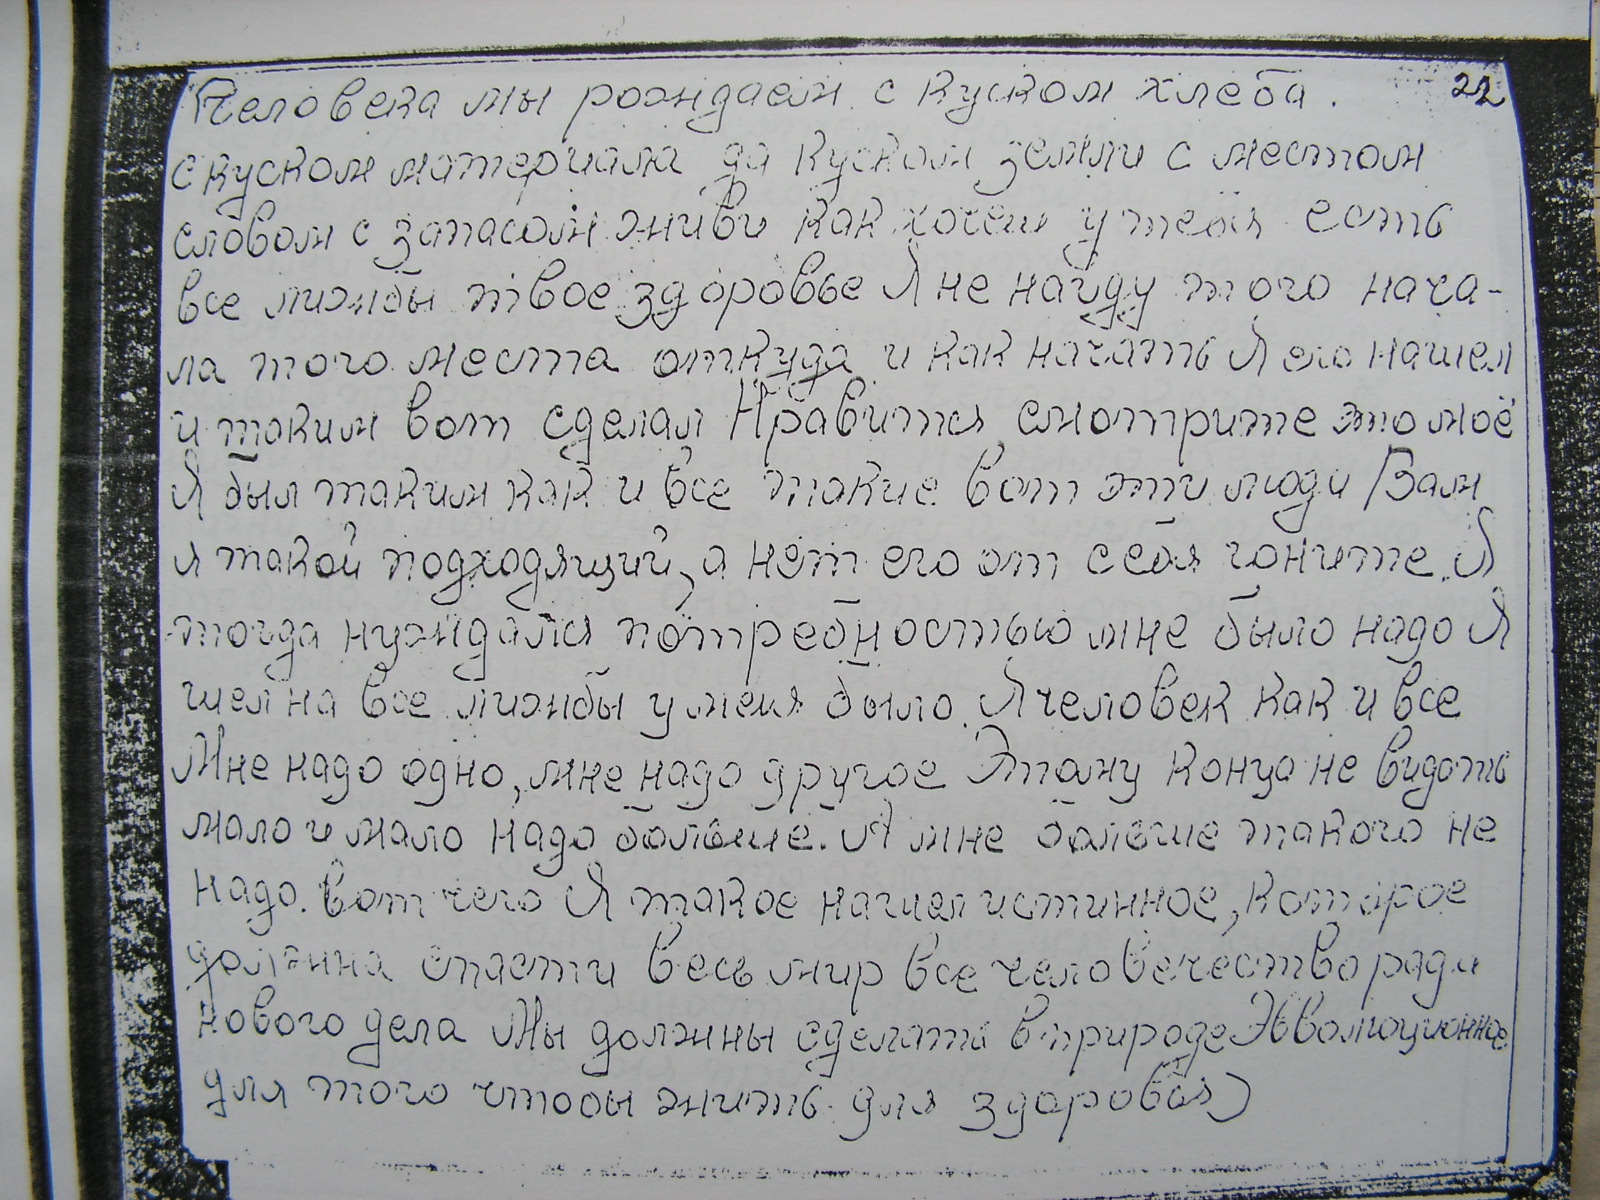 22
Человека мы рождаем с куском хлеба.
с куском материала да куском земли с местом
словом с запасом живи как хочеш у тебя есть
все лижбы твое здоровье Я не найду того нача-
ла того места откуда и как начать Я его нашел
и таким вот сделал Нравится смотрите это моё
Я был таким как и все такие вот эти люди Вам
я такой подходящий, а нет его от себя гоните. Я
тогда нуждался потребностью мне было надо Я
шел на все лижбы у меня было. Я человек как и все
Мне надо одно, мне надо другое Этому конца не видать
мало и мало надо больше. А мне больше такого не
надо. Вот чего Я такое нашел истинное, которое
должна спасти весь мир все человечество ради
нового дела Мы должны сделать в природе Эволюционное
для того чтобы жить для здоровья)